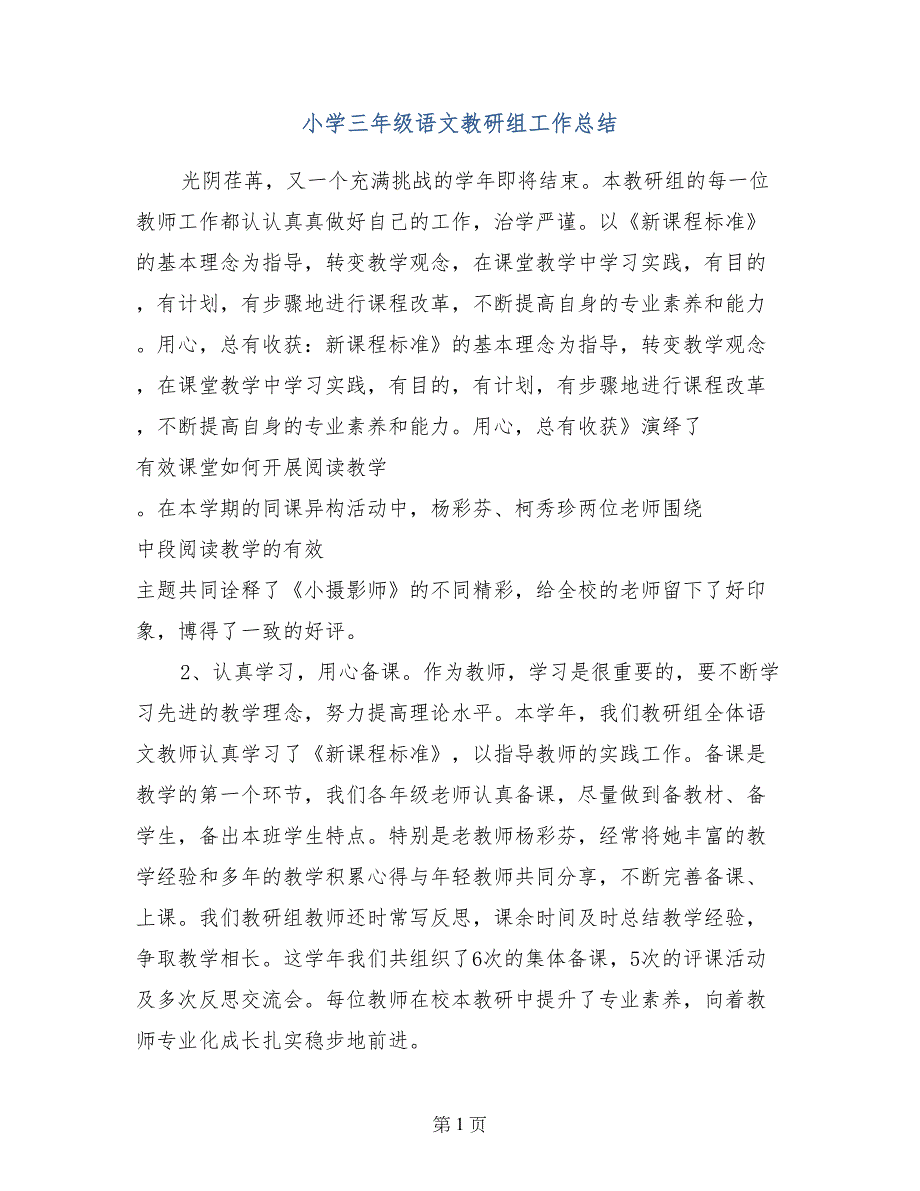 小学三年级语文教研组工作总结
光阴荏苒，又一个充满挑战的学年即将结束。本教研组的每一位
教师工作都认认真真做好自己的工作，治学严谨。以《新课程标准》
的基本理念为指导，转变教学观念，在课堂教学中学习实践，有目的
，有计划，有步骤地进行课程改革，不断提高自身的专业素养和能力
。用心，总有收获：新课程标准》的基本理念为指导，转变教学观念
，在课堂教学中学习实践，有目的，有计划，有步骤地进行课程改革
，不断提高自身的专业素养和能力。用心，总有收获》演绎了
有效课堂如何开展阅读教学
。在本学期的同课异构活动中，杨彩芬、柯秀珍两位老师围绕
中段阅读教学的有效
主题共同诠释了《小摄影师》的不同精彩，给全校的老师留下了好印
象，博得了一致的好评。
2、认真学习，用心备课。作为教师，学习是很重要的，要不断学
习先进的教学理念，努力提高理论水平。本学年，我们教研组全体语
文教师认真学习了《新课程标准》，以指导教师的实践工作。备课是
教学的第一个环节，我们各年级老师认真备课，尽量做到备教材、备
学生，备出本班学生特点。特别是老教师杨彩芬，经常将她丰富的教
学经验和多年的教学积累心得与年轻教师共同分享，不断完善备课、
上课。我们教研组教师还时常写反思，课余时间及时总结教学经验，
争取教学相长。这学年我们共组织了6次的集体备课，5次的评课活动
及多次反思交流会。每位教师在校本教研中提升了专业素养，向着教
师专业化成长扎实稳步地前进。
第 1 页